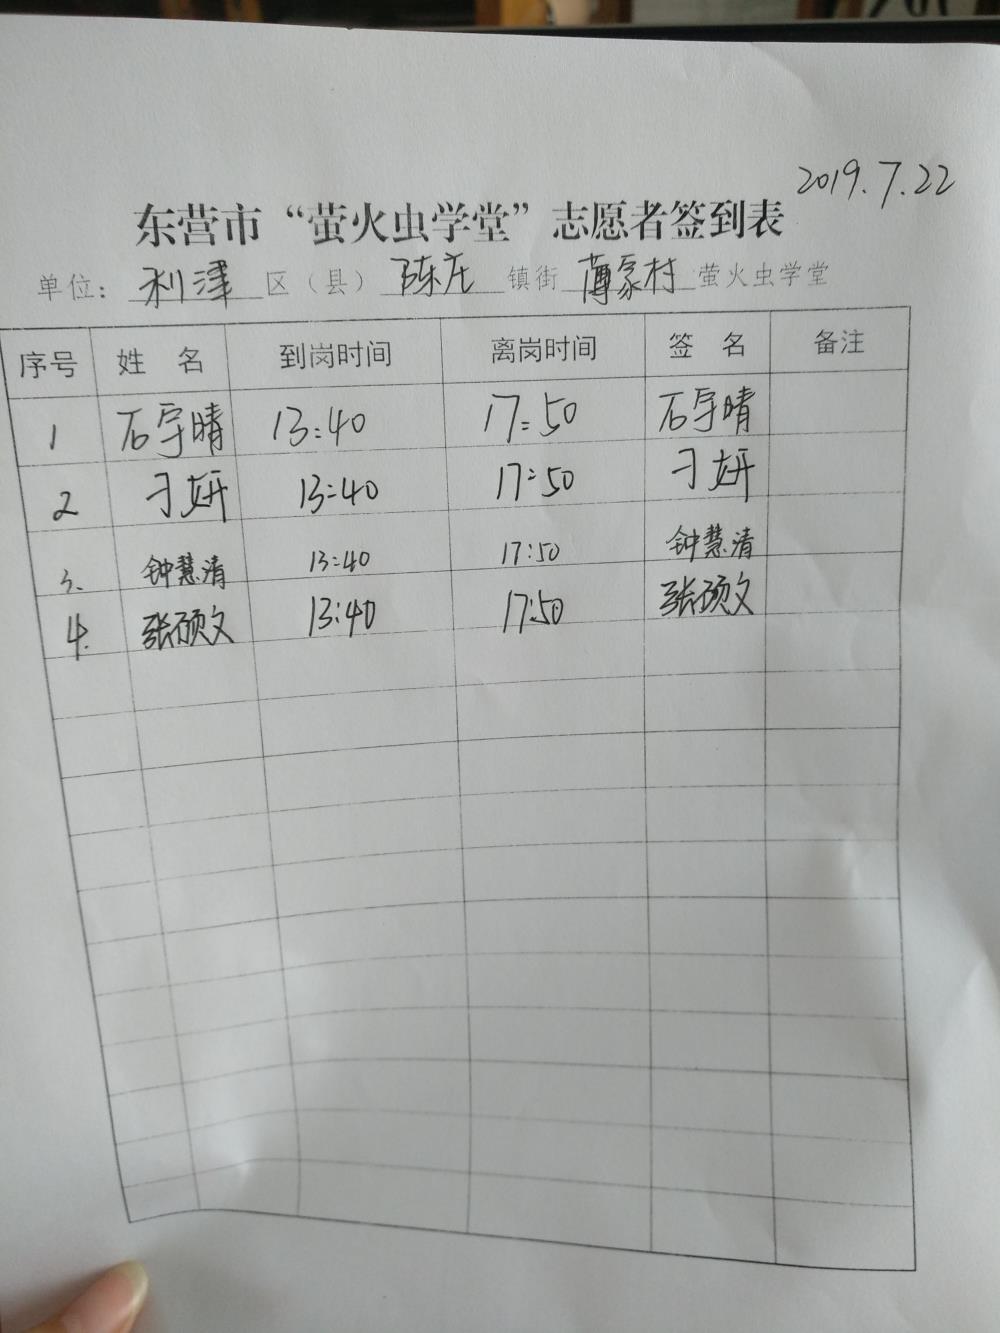 2019.7.22
东营市“萤火虫学堂”志愿者签到表
单位：利津区（县）陈庄镇街薄家村萤火虫学堂
序号 姓名 到岗时间 离岗时间 签名 备注
1 石宇晴 13:40 17:50 石宇晴
2 刁妍 13:40 17:50 刁妍
3. 钟慧清 13:40 17:50 钟慧清
4. 张硕文 13:40 17:50 张硕文